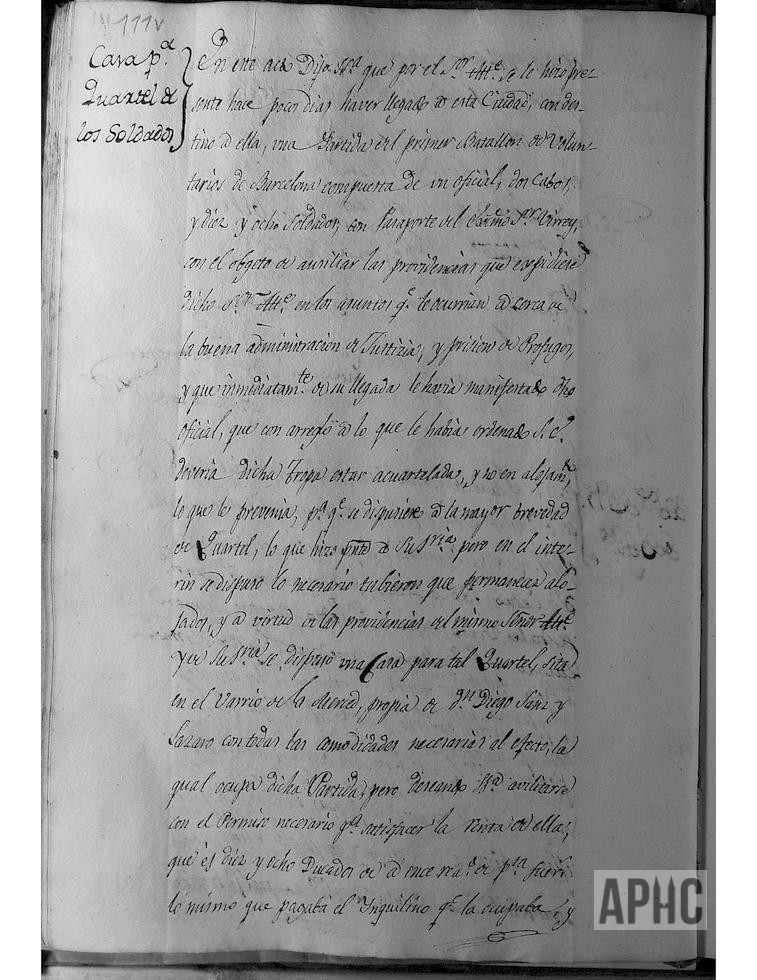 111v
Casa p.ª
Quartel de
los Soldados
En este acto Dijo SSª que por el S.or Alc.e se le hizo pre-
sente hace pocos dias haver llegado à esta Ciudad, con des-
tino à ella, una Partida del primer Batallon de Volun-
tarios de Barcelona compuesta de un oficial, dos Cabos,
y diez y ocho Soldados, con Pasaporte del S.or Virrey,
con el obgeto de auxiliar las providencias que expidiese
dicho S.or Alc.e en los asuntos q.e le ocurrian à cerca de
la buena administracion de Justicia, y prision de Profugos,
y que inmediatam.te de su llegada le havia manifestado dho
oficial, que con arreglo à lo que le habia ordenado S. E.
deveria dicha Tropa estar acuartelada, y no en alojam.to
lo que le prevenia, p.ª q.e se dispusiere à la mayor brevedad
de Quartel, lo que hizo pnte à Su S.ria pero en el inte-
rin se dispuso lo necesario tubieron que permanecer alo-
jados, y à virtud de las providencias del mismo Señor Alc.e
y de Su S.ria se dispuso una Casa para tal Quartel, sita
en el Varrio de la Merced, propia de D.n Diego Sanz y
Lazaro con todas las comodidades necesarias al efecto, la
qual ocupa dicha Partida; pero deseando SSª avilitarse
con el Permiso necesario p.ª satisfacer la renta de ella,
que es diez y ocho Ducados de à once rea.s de p.ta fuera
lo mismo que pagaba el Ynquilino q.e la ocupaba, y
APHC